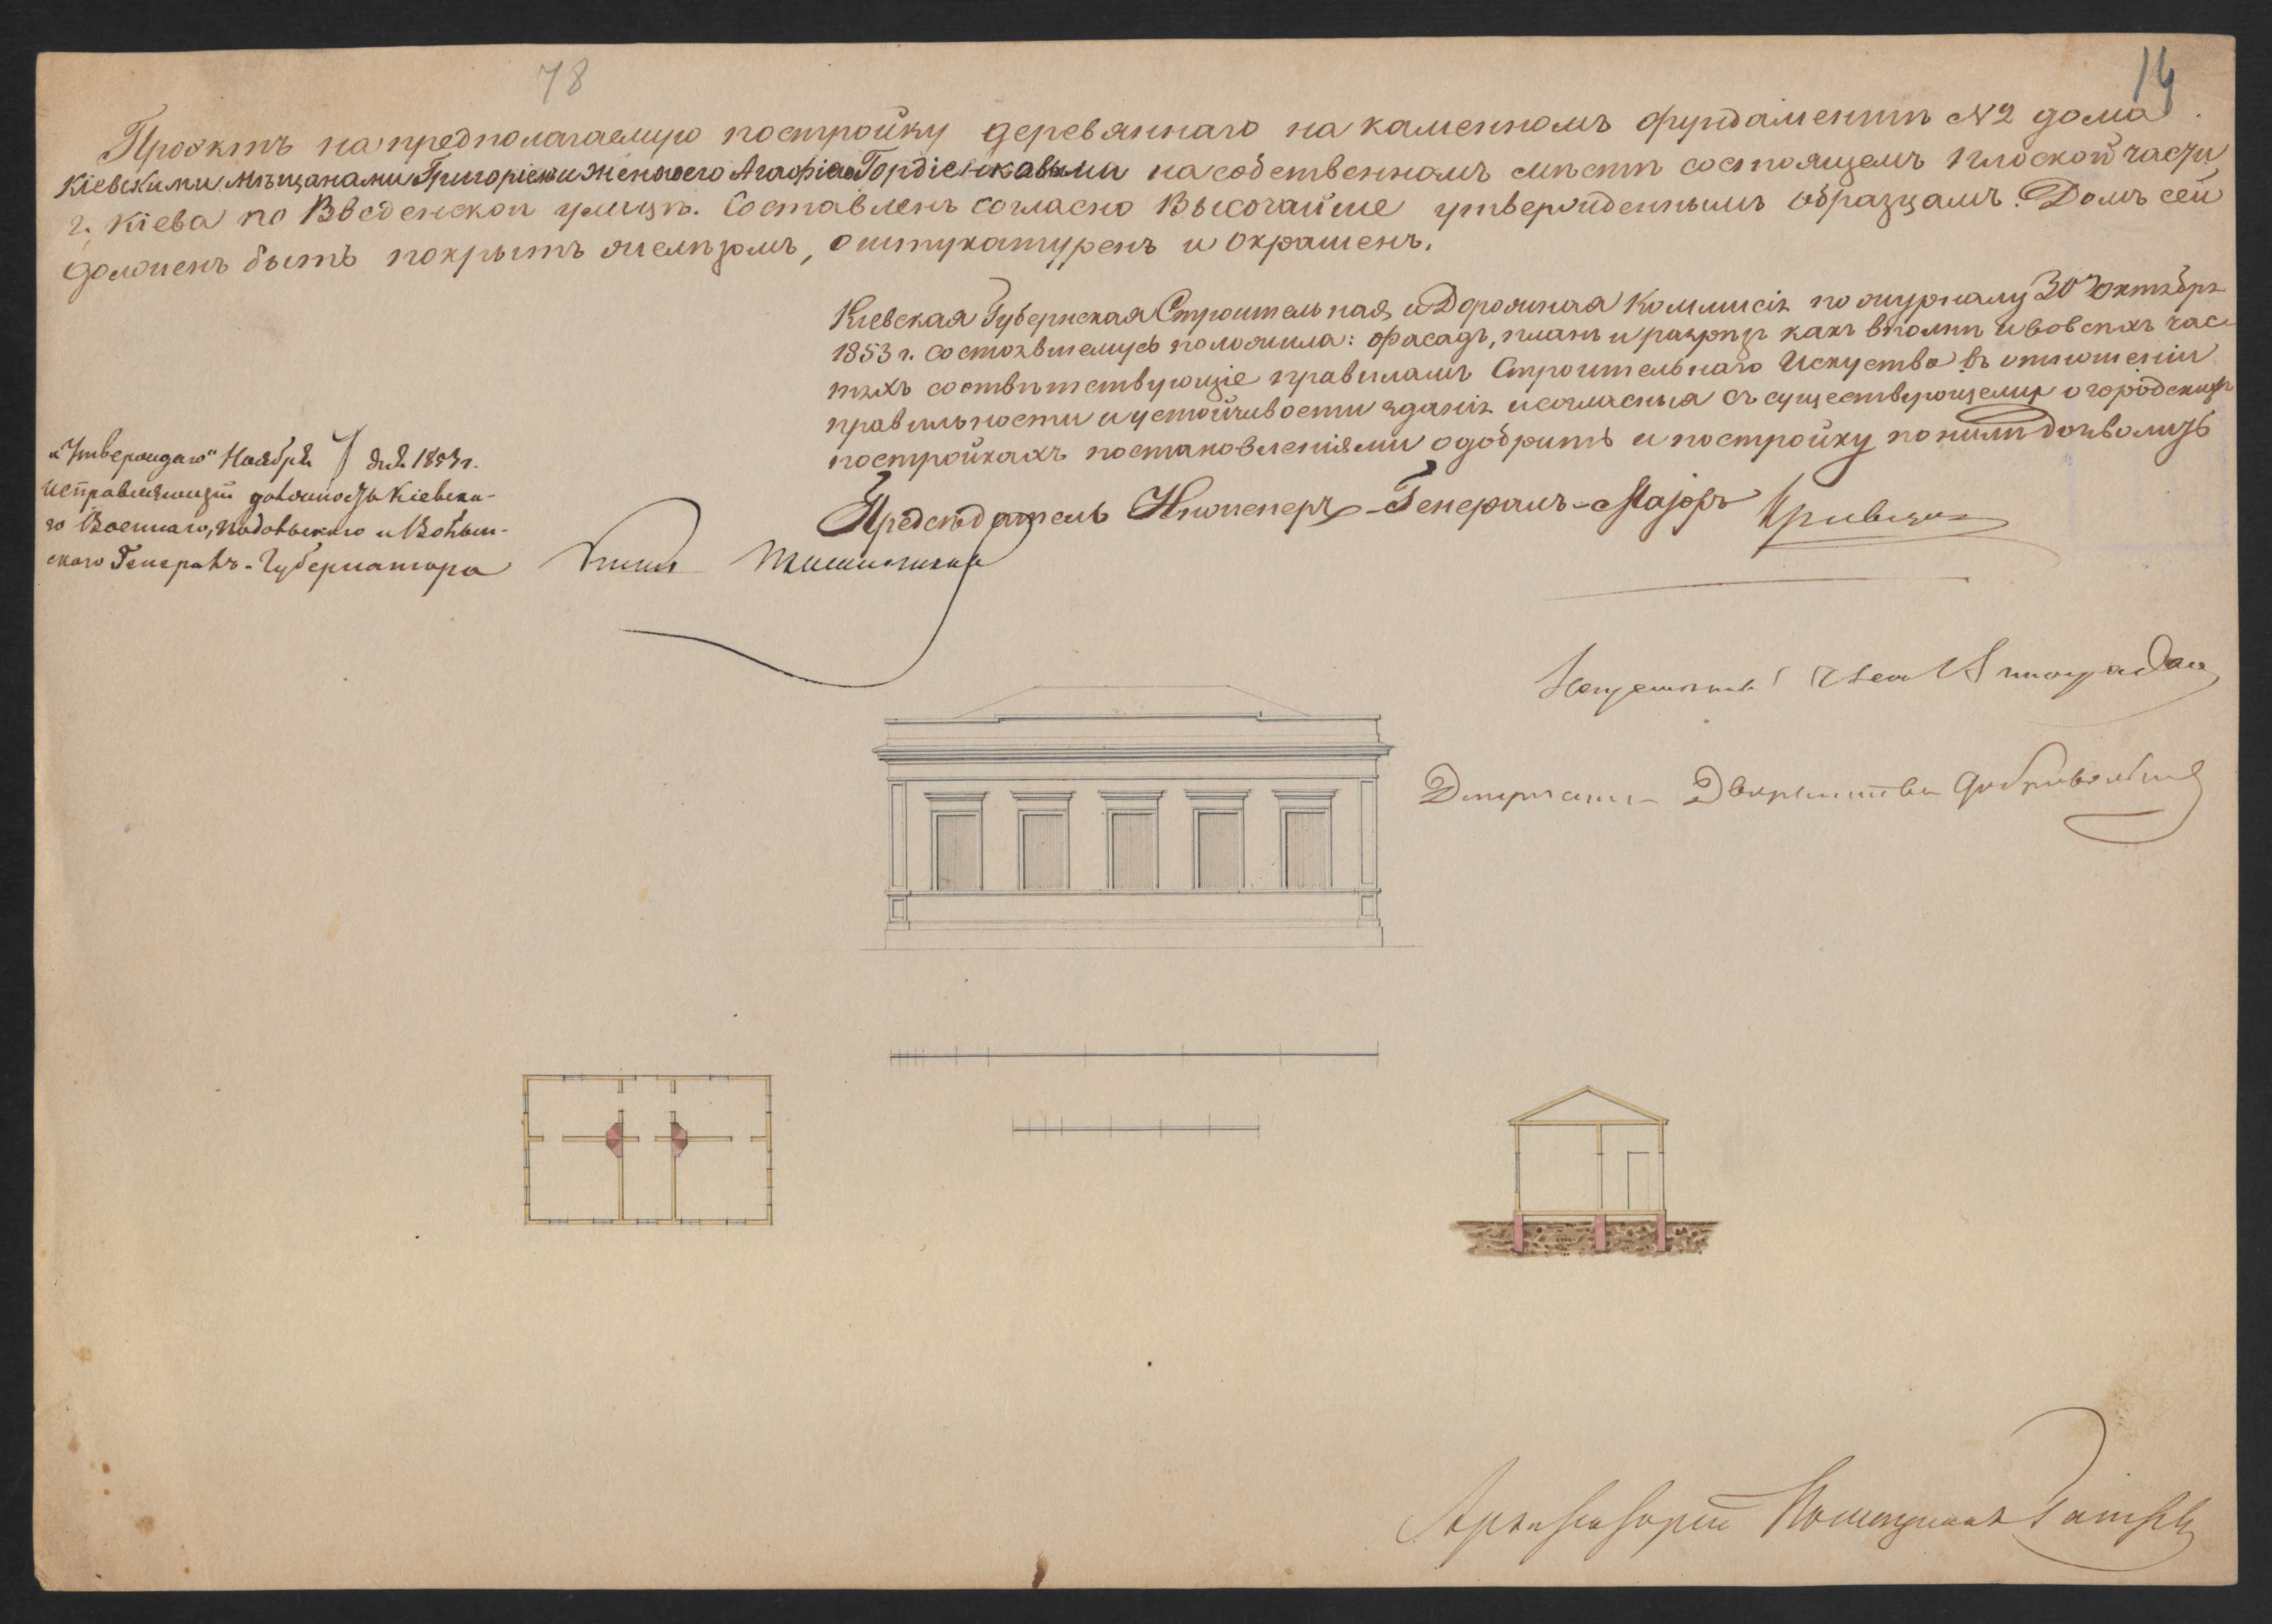 78
14
Проэктъ на предполагаемую постройку деревяннаго на каменномъ фундаментѣ № 2 дома
Кіевскими мѣщанами Григоріемъ и женою его Агафіею Гордіенковыми на собственномъ мѣстѣ состоящемъ Плоской части
г. Кіева по Введенской улицѣ. Составленъ согласно Высочайше утвержденнымъ образцамъ. Домъ сей
долженъ быть покрытъ желѣзомъ, оштукатуренъ и окрашенъ.
Кіевская Губернская Строительная и Дорожная Коммисія по журналу 30 Октября
1853 г. состоявшемусь положила: фасадъ, планъ и разрѣзъ какъ вполнѣ и во всѣхъ час-
тяхъ соотвѣтствующіе правиламъ Строительнаго Искуства въ отношеніи
правильности и устойчивости зданія и согласныя съ существующеми о городскихъ
постройкахъ постановленіями одобрить и постройку по нимъ дозволить
Предсѣдатель Инженеръ-Генералъ-Маіоръ
„Утверждаю“ Ноября дня 1853 г.
Исправляющій должность Кіевска-
го Военнаго, Подольскаго и Волын-
скаго Генералъ-Губернатора